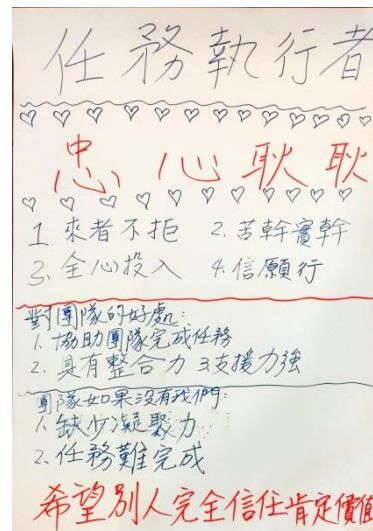 任務執行者
忠心耿耿
1. 來者不拒 2. 苦幹實幹
3. 全心投入 4. 信願行
對團隊的好處:
1. 協助團隊完成任務
2. 具有整合力 3.支援力強
團隊如果沒有我們:
1. 缺少凝聚力
2. 任務難完成
希望別人完全信任肯定價值